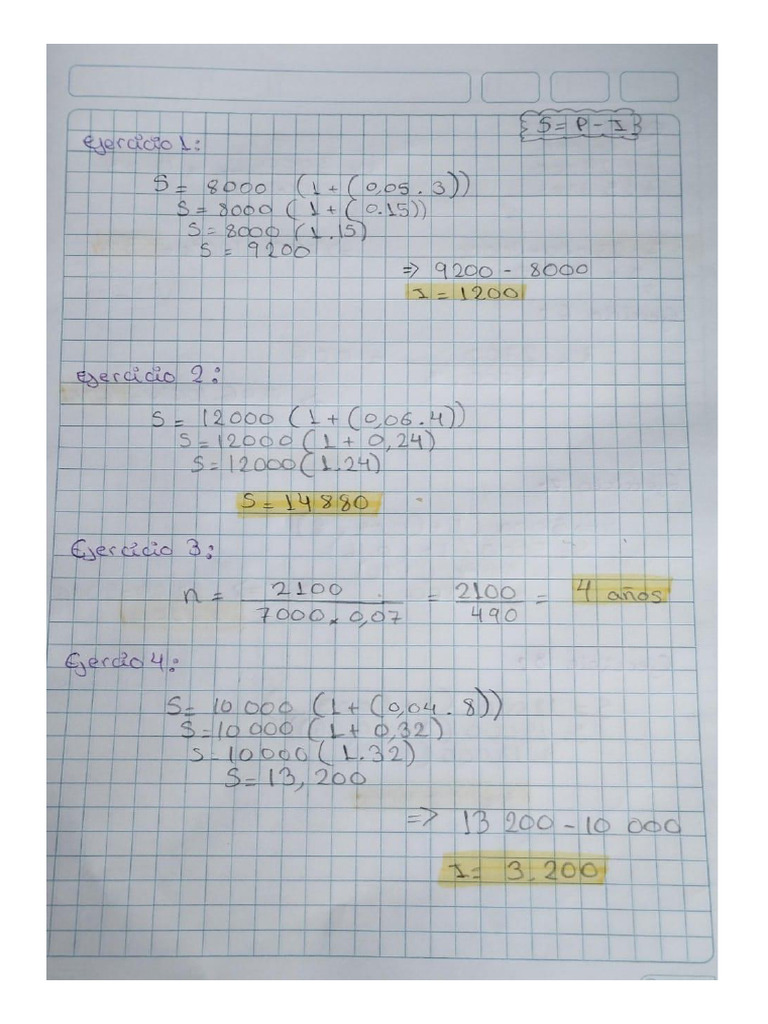 S = P - I
Ejercicio 1:
S = 8000 (1 + (0,05 . 3))
S = 8000 (1 + (0.15))
S = 8000 (1.15)
S = 9200
=> 9200 - 8000
I = 1200
Ejercicio 2:
S = 12000 (1 + (0,06 . 4))
S = 12000 (1 + 0,24)
S = 12000 (1.24)
S = 14880
Ejercicio 3:
n = 2100 / 7000 x 0,07 = 2100 / 490 = 4 años
Ejercio 4:
S = 10 000 (1 + (0,04 . 8))
S = 10 000 (1 + 0,32)
S = 10 000 (1.32)
S = 13, 200
=> 13 200 - 10 000
I = 3.200